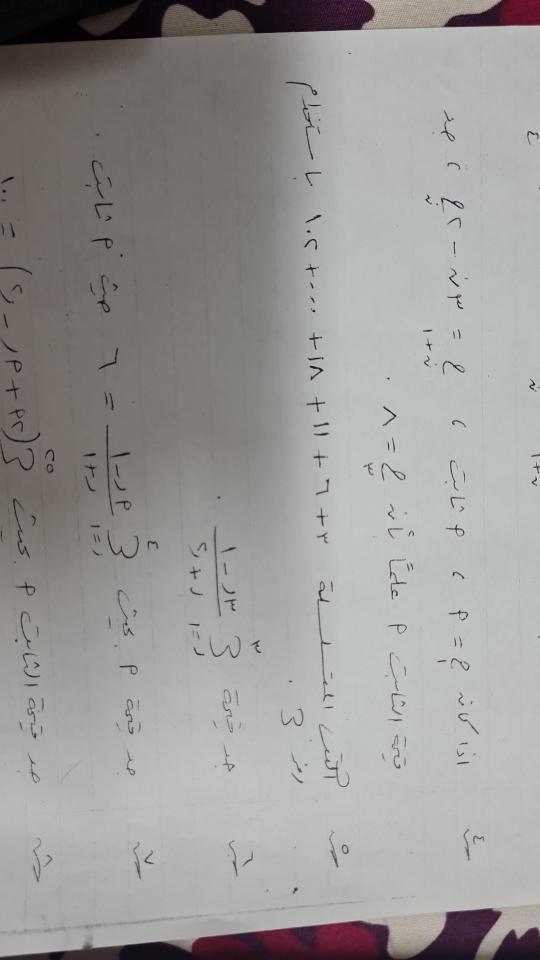 ن+١ ن ٤
س٤ اذا كان ح١ = م ، م ثابت ، ح ن+١ = ٣ن - ٢ح ن ، جد
قيمة الثابت م علماً بأن ح٣ = ٨ .
س٥ اكتب المتسلسلة ٣ + ٦ + ١١ + ١٨ + ... + ١٠٢ باستخدام
رمز ∑ .
س٦ جد قيمة ∑ (ر=١ ، ٣) (٣ر - ١)/(ر + ٢) .
س٧ جد قيمة م بحيث ∑ (ر=١ ، ٤) (م ر - ١)/(ر + ١) = ٦ حيث م ثابت .
س٨ جد قيمة الثابت م بحيث ∑ ٢٥ (٢م + م ر - ٢) = ١٠٠